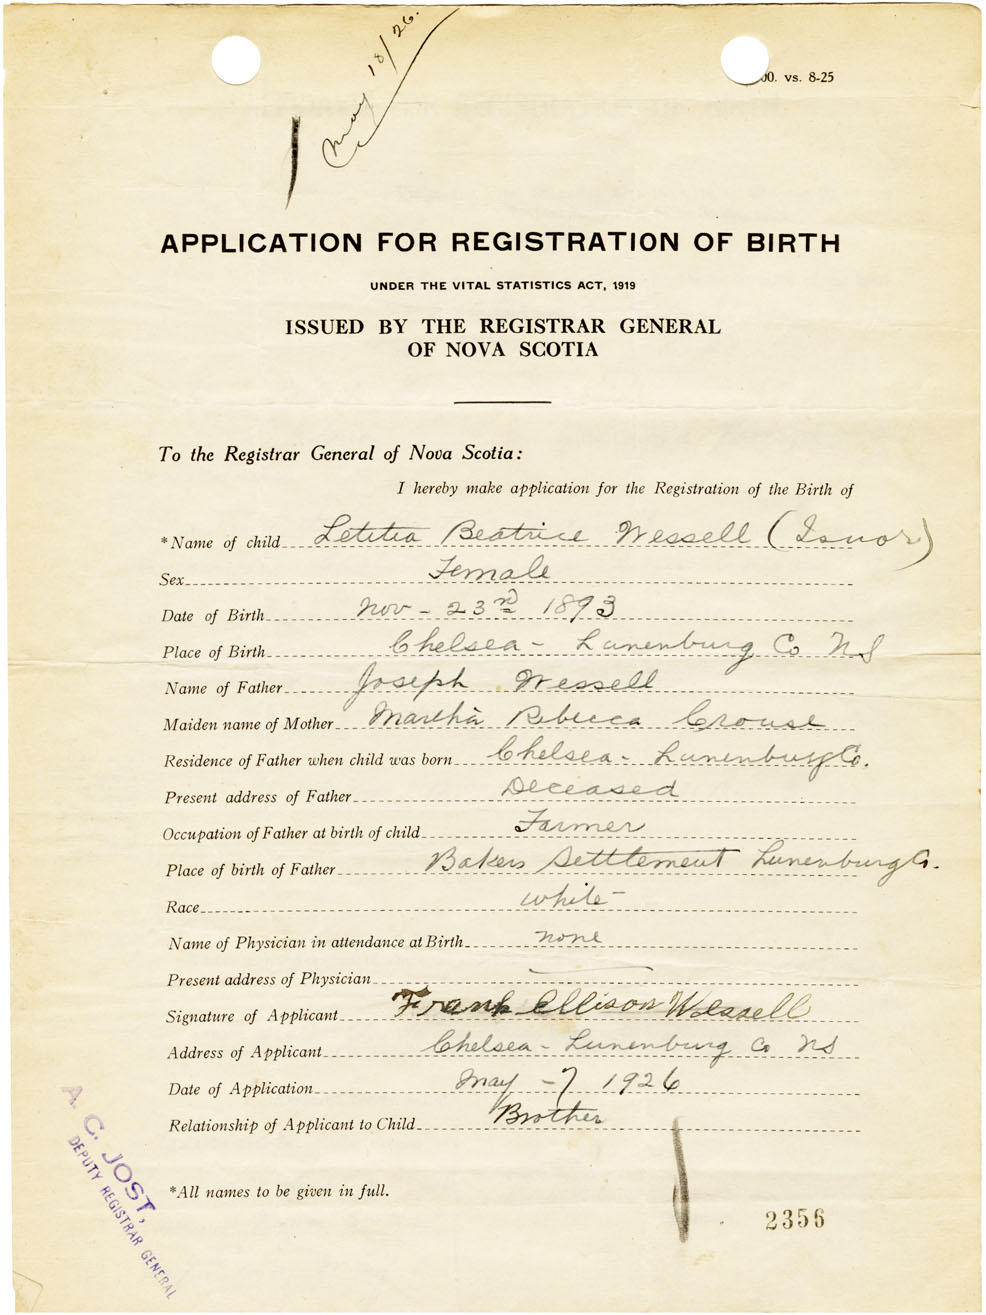 May 18/26.
00. vs. 8-25
APPLICATION FOR REGISTRATION OF BIRTH
UNDER THE VITAL STATISTICS ACT, 1919
ISSUED BY THE REGISTRAR GENERAL
OF NOVA SCOTIA
To the Registrar General of Nova Scotia:
I hereby make application for the Registration of the Birth of
*Name of child Letitia Beatrice Wessell (Isnor)
Sex Female
Date of Birth Nov - 23rd 1893
Place of Birth Chelsea - Lunenburg Co NS
Name of Father Joseph Wessell
Maiden name of Mother Martha Rebecca Crouse
Residence of Father when child was born Chelsea - Lunenburg Co.
Present address of Father Deceased
Occupation of Father at birth of child Farmer
Place of birth of Father Bakers Settlement Lunenburg Co.
Race white
Name of Physician in attendance at Birth none
Present address of Physician
Signature of Applicant Frank Ellison Wessell
Address of Applicant Chelsea - Lunenburg Co NS
Date of Application May - 7 1926
Relationship of Applicant to Child Brother
A. C. JOST,
DEPUTY REGISTRAR GENERAL
*All names to be given in full.
2356